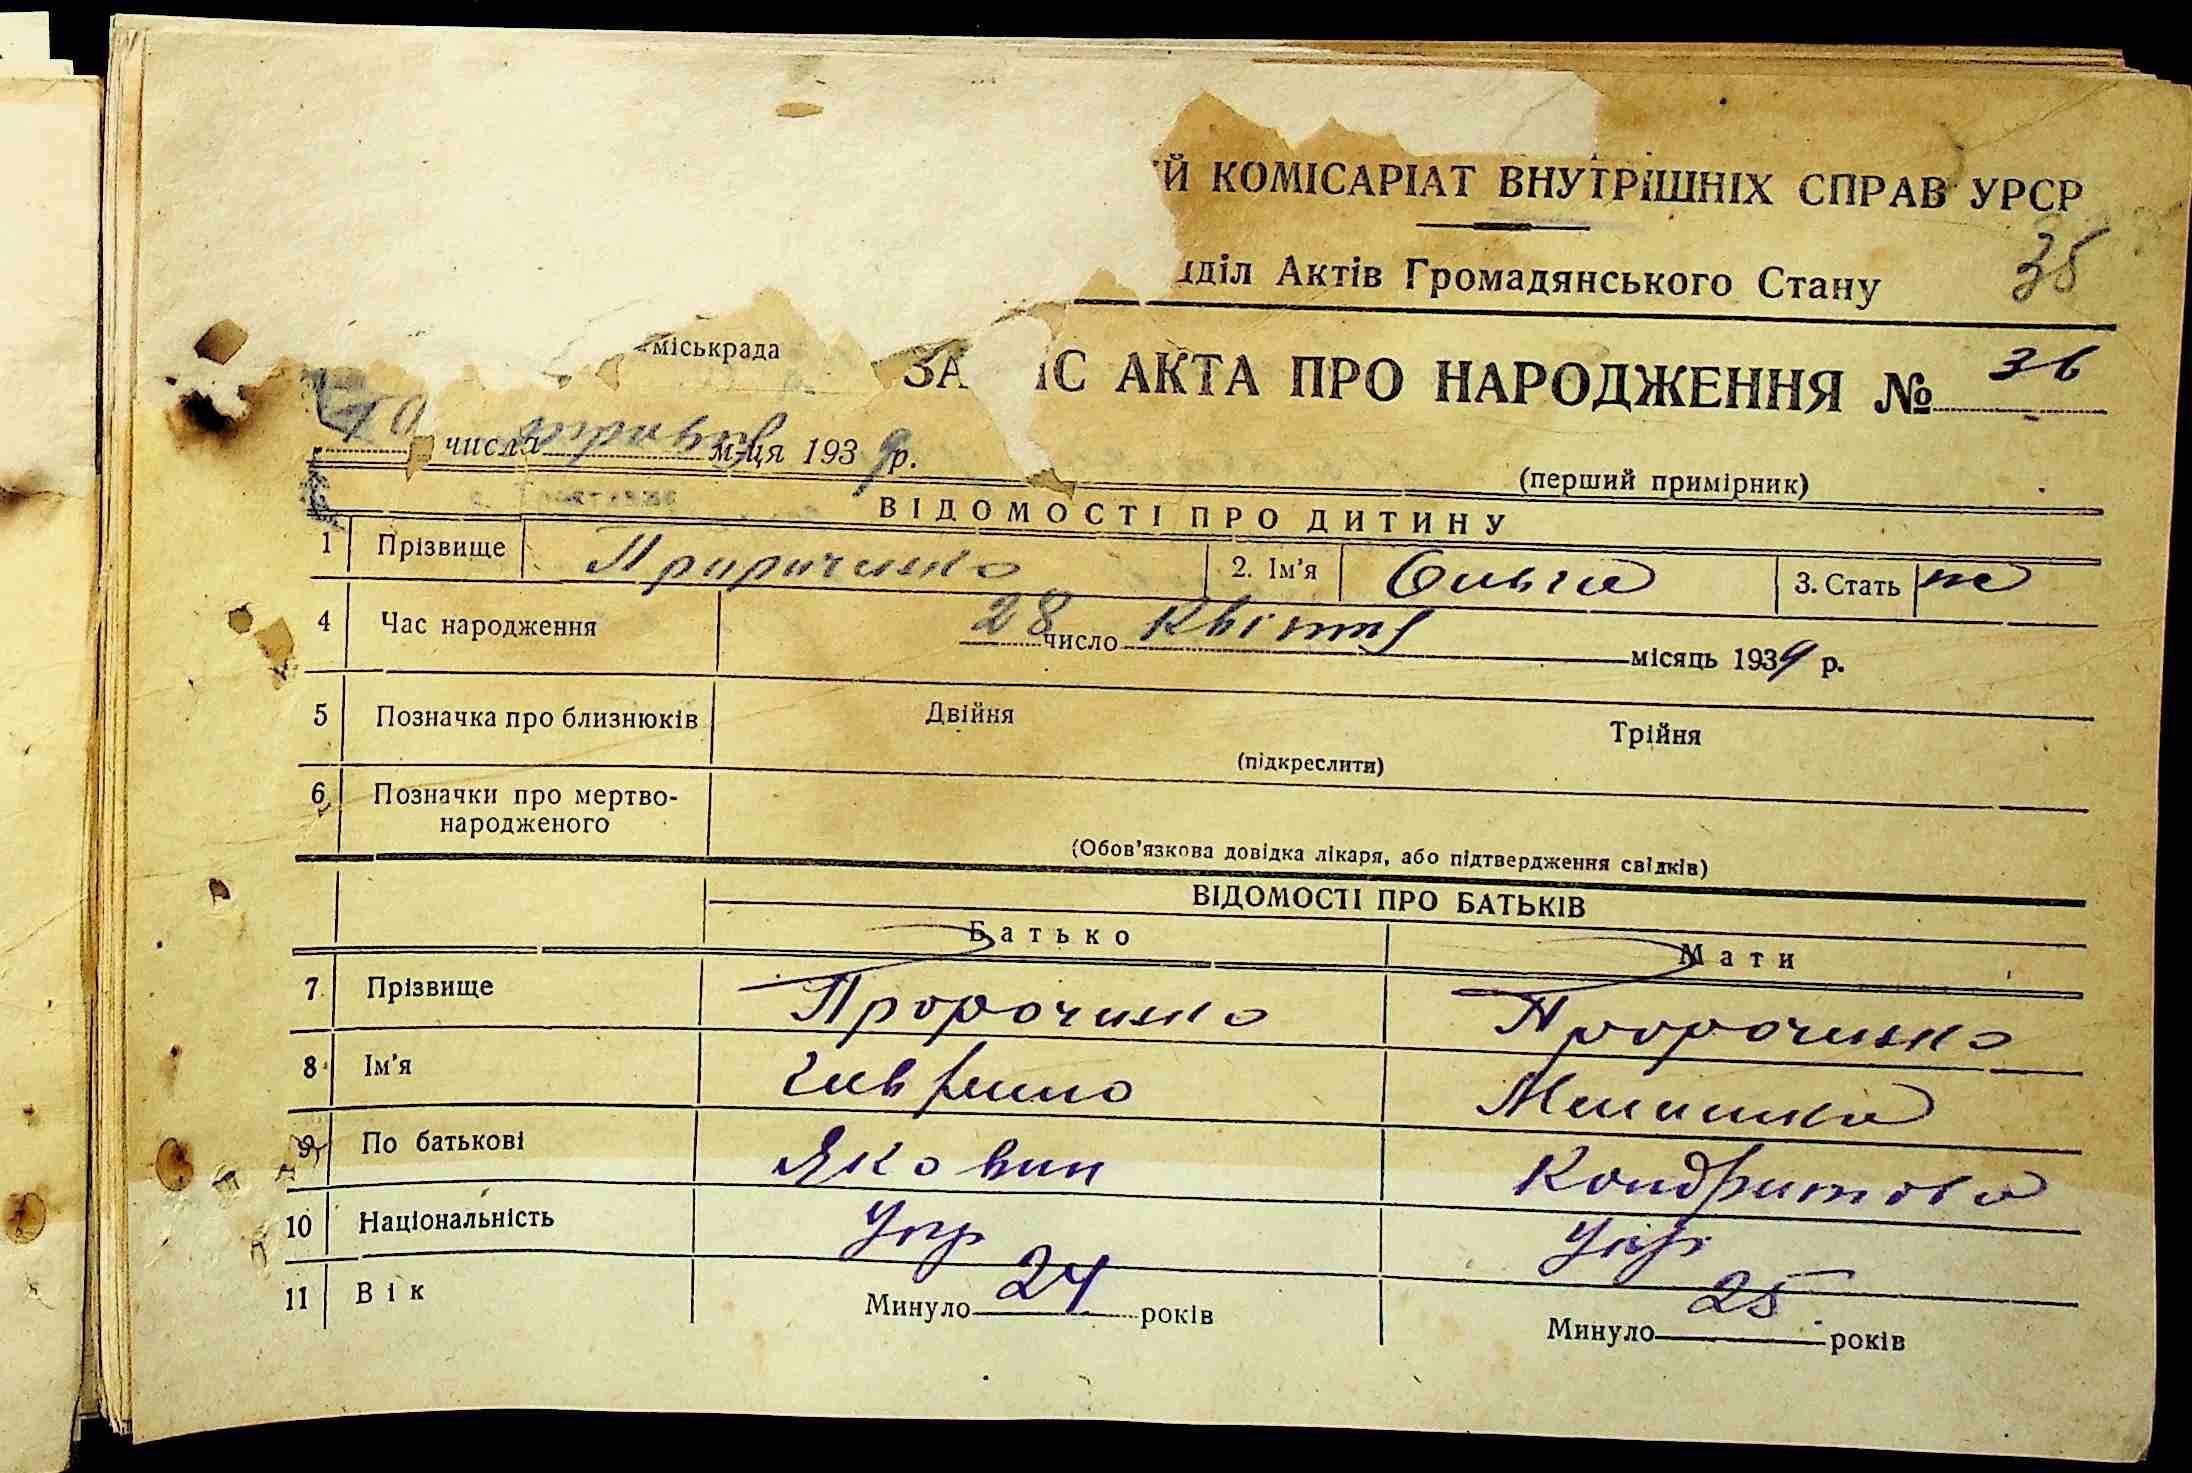 Й КОМІСАРІАТ ВНУТРІШНІХ СПРАВ УРСР
діл Актів Громадянського Стану 35
міськрада
ЗА ІС АКТА ПРО НАРОДЖЕННЯ № 36
10 числа травня м-ця 1939 р.
(перший примірник)
ВІДОМОСТІ ПРО ДИТИНУ
1 Прізвище Пророченко 2. Ім'я Ольга 3. Стать ж
4 Час народження 28 число Квітня місяць 1939 р.
5 Позначка про близнюків Двійня Трійня
(підкреслити)
6 Позначки про мертво-
народженого
(Обов'язкова довідка лікаря, або підтвердження свідків)
ВІДОМОСТІ ПРО БАТЬКІВ
Батько Мати
7 Прізвище Пророченко Пророченко
8 Ім'я Гаврило Меланка
9 По батькові Якович Кондратова
10 Національність Укр Укр
11 Вік Минуло 24 років Минуло 25 років